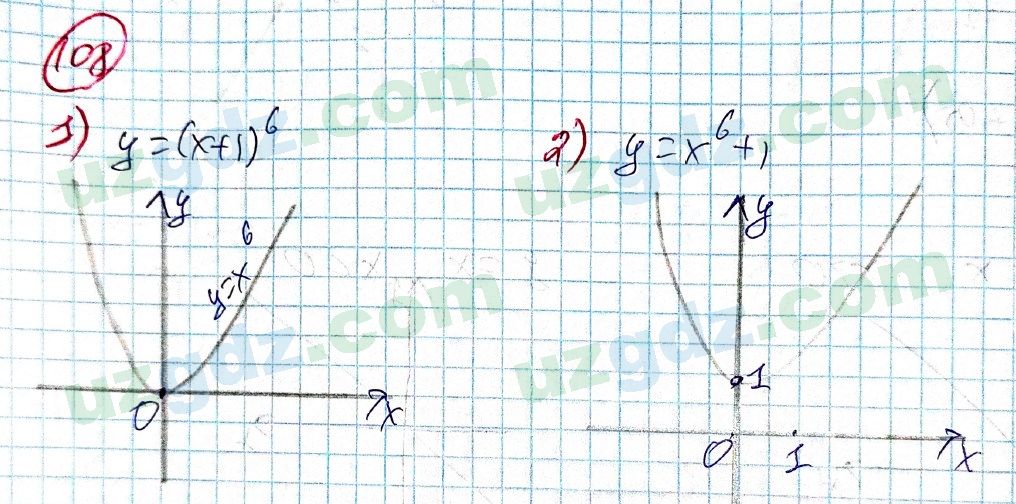 108
1) y=(x+1)⁶
2) y=x⁶+1
y
y=x⁶
O
x
y
1
O
1
x
uzgdz.com
uzgdz.com
uzgdz.com
uzgdz.com